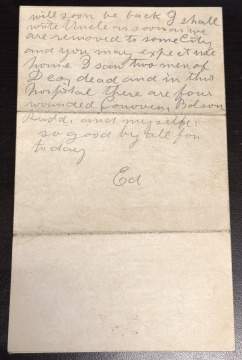 will soon be back I shall
write Uncle as soon as we
are removed to some City
and you may expect me
home I saw two men of
D Co, dead and in this
hospital there are four
wounded, Dobson,
Rudd, and myself,
so good by all for
to day
Ed